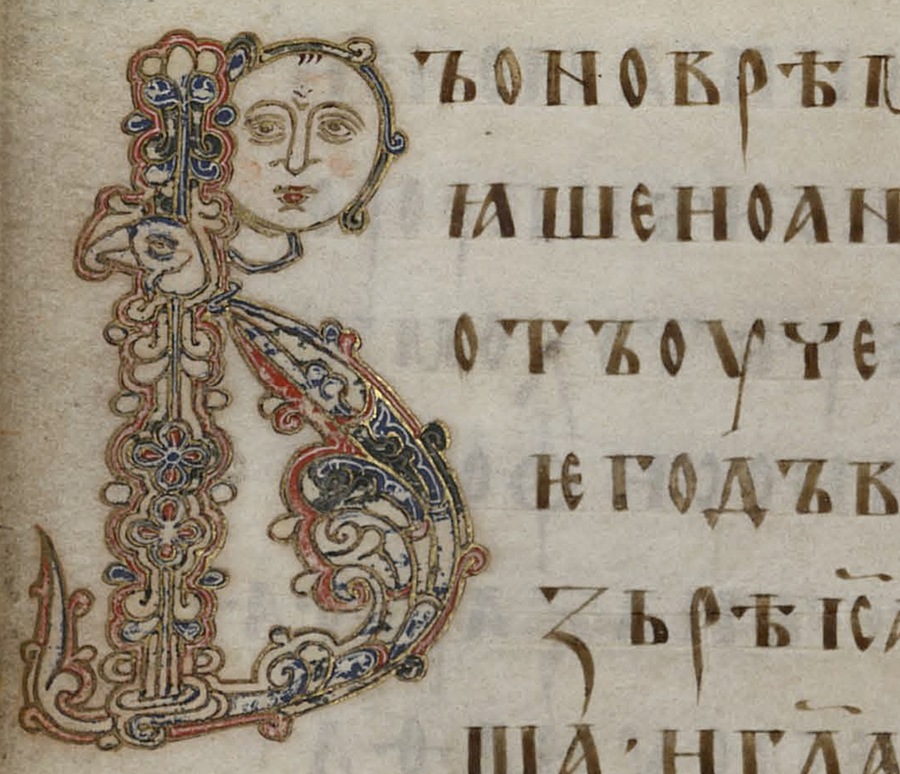 ВЪОНОВРѢМ
ꙖШЕИОАН
ОТЪОУЧЕ
ѤГОДЪВ
ЗЬРѢІС҃А
ША·ИГЛ҃А